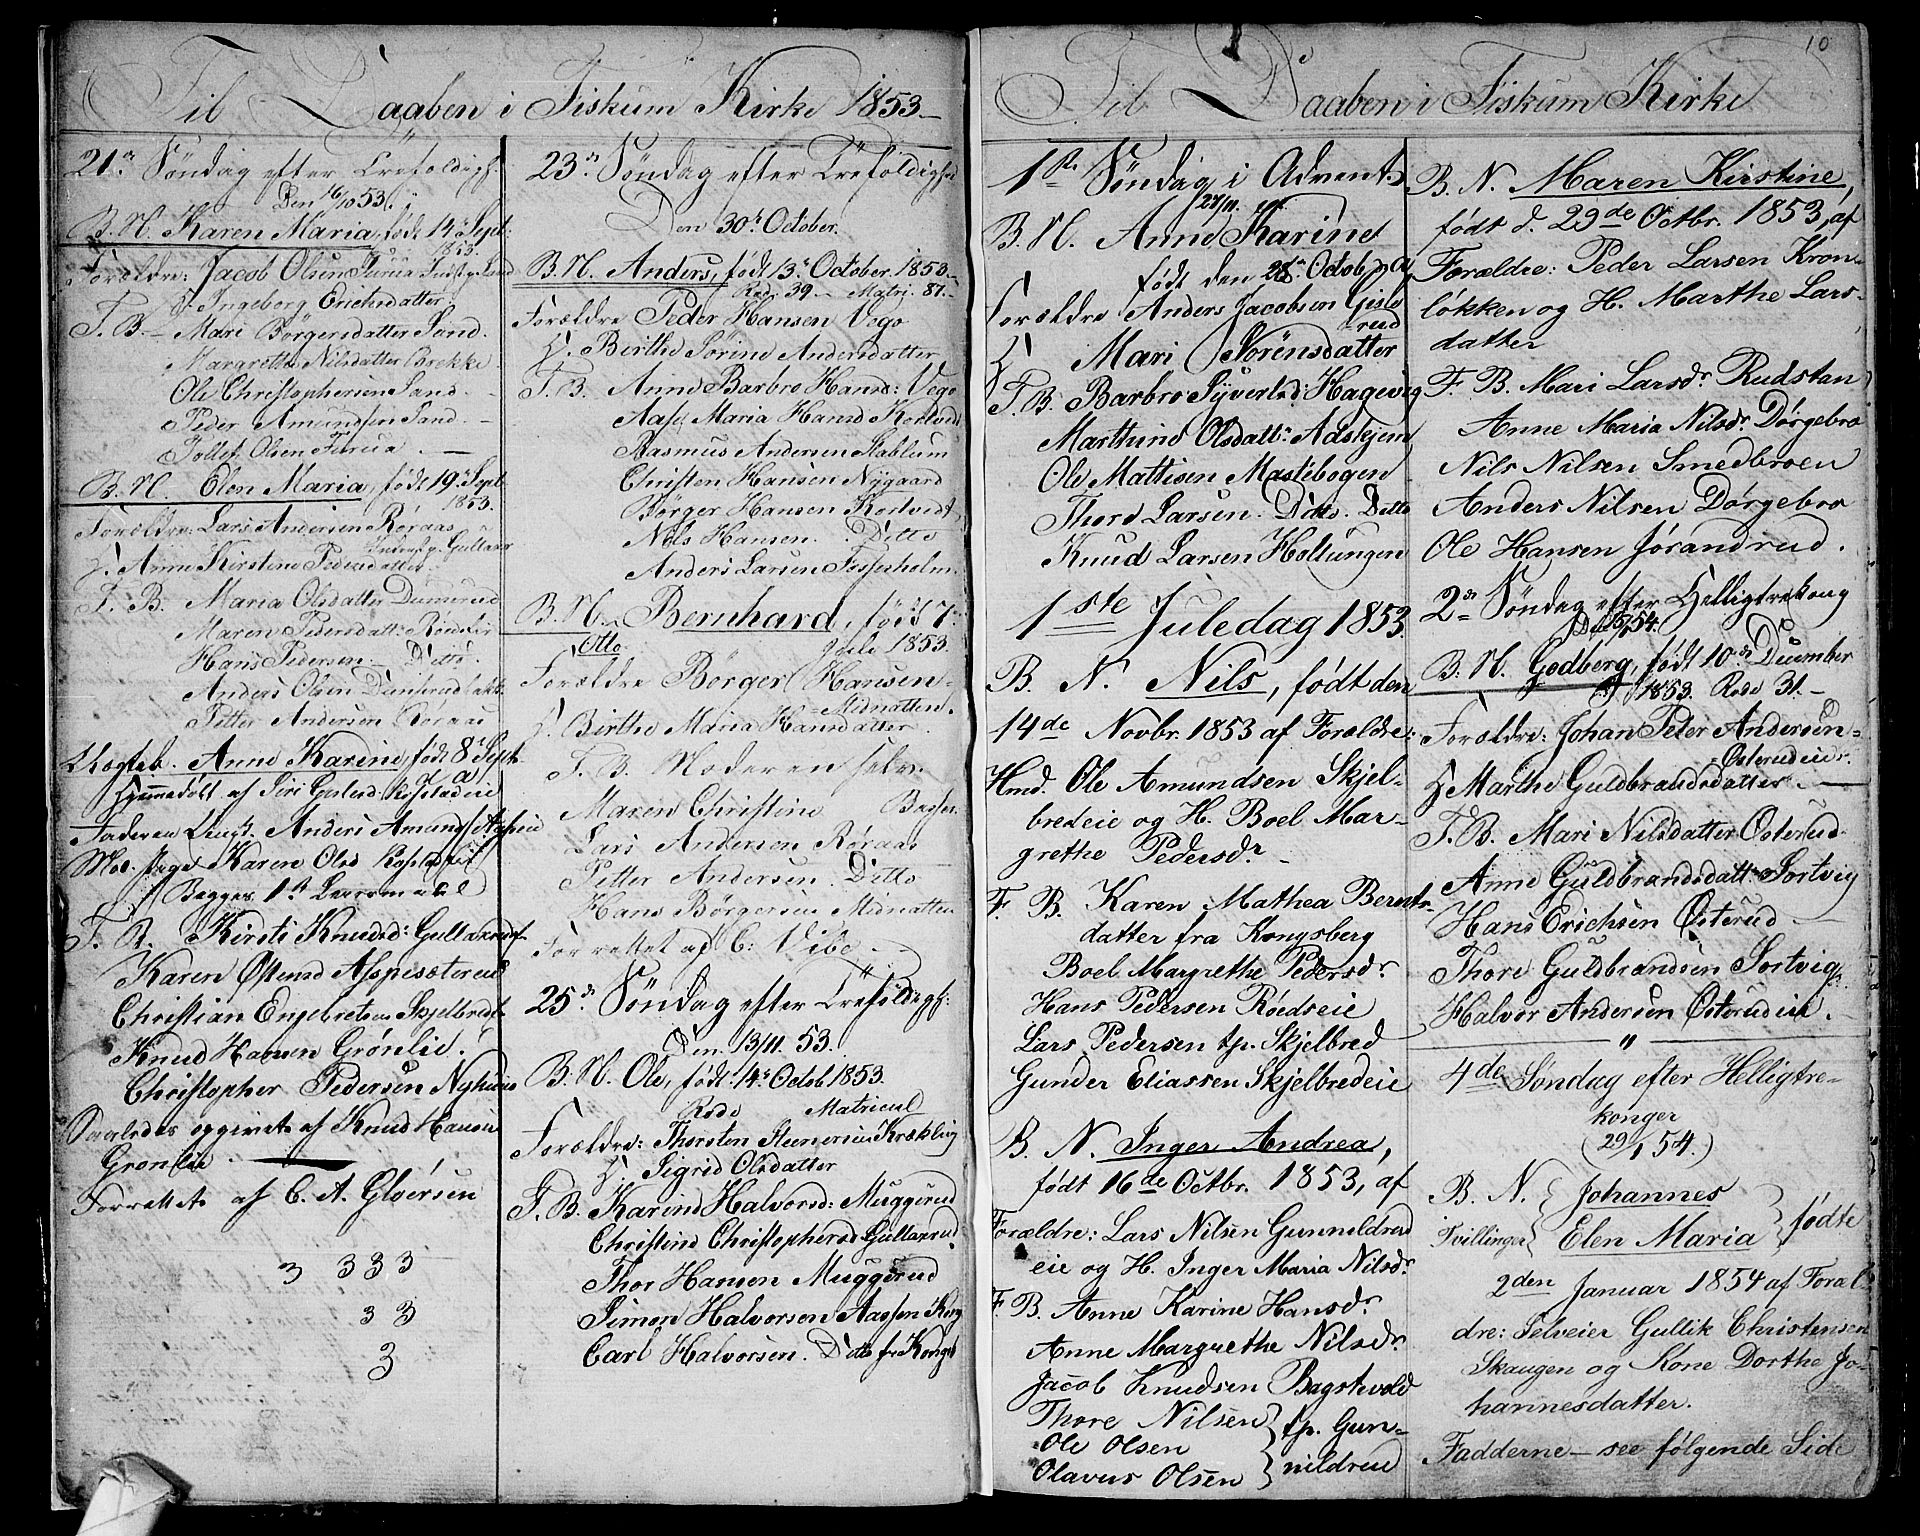 Til Daaben i Fiskum Kirke 1853
21de Søndag efter Trefoldigh:
Den 16/10 53.
B. N. Karen Maria, født 14de Sept:
1853.
Forældre: Jacob Olsen Furua
H. Ingeborg Erichsdatter.
F. B. Mari Børgersdatter Sand.
Margrethe Nilsdatter Brekke.
Ole Christophersen Sand.
Peder Amundsen Sand.
Tollef Olsen Furua.
B. N. Elen Maria, født 19de Sept
1853.
Forældre: Lars Andersen Røraas
H. Anne Kirstine Pedersdatter.
F. B. Maria Olsdatter Dunserud
Maren Pedersdatt:
Hans Pedersen. Ditto.
Anders Olsen Dunserud
Petter Andersen Røraas
Uægteb. Anne Karine født 8de Sept
Hjemmedøbt af Siri
Faderen Ungk. Anders Amunds
Mod. Pige Karen Olsd
Begges 1ste Leiermaal
F. B. Kirsti Knudsd: Gullaxrud
Karen Østensd Aspesæterud
Christian Engebretsen Skjelbred
Knud Hansen Grønlie.
Christopher Pedersen Nyhuus
Saaledes opgivet af Knud Hansen
Grønlie.
Forrettet af C. A. Gløersen
3 333
33
3
23de Søndag efter Trefoldighed
Den 30te October.
B. N. Anders, født 13de October 1853.
Rode 39 - Matri. 87.
Forældre Peder Hansen Vego
H. Birthe Sorine Andersdatter
F. B. Anne Barbro Hansd: Vego
Aase Maria Hansd Kortvedt
Rasmus Andersen Stablum
Christen Hansen Nygaard
Børger Hansen Kortvedt,
Nils Hansen. Ditto
Anders Larsen Fosserholm.
B. N. Bernhard, født 7de
Otto
Juli 1853.
Forældre Børger Hansen
Midnatten.
H. Birthe Maria Hansdatter.
F. B. Moderen selv.
Maren Christine
Lars Andersen Røraas
Petter Andersen. Ditto
Hans Børgersen Midnatten
Forrettet af C: Vibe.
25de Søndag efter Trefoldigh:
Den 13/11. 53.
B. N. Ole, født 14de Octob 1853.
Rode Matricul
Forældre: Thorsten Steenersen Krækling
H. Sigrid Olsdatter
F. B. Karine Halvorsd: Muggerud
Christine Christophersd Gullaxrud.
Thor Hansen Muggerud
Simon Halvorsen Aassen Kong
Carl Halvorsen. Ditto fr Kongsb
10
Til Daaben i Fiskum Kirke
1ste Søndag i Advent
27/11.
B. N. Anne Karine
født den 28de Octob
Forældre Anders Jacobsen Gisle
rud
H Mari Sørensdatter
F. B. Barbro Syvertsd: Hagevig
Marthine Olsdattr. Adskjem
Ole Mattisen Mastebogen
Thore Larsen. Ditto. Ditto
Knud Larsen Holtungen
1ste Juledag 1853.
B. N. Nils, født den
14de Novbr. 1853 af Forældre:
Hmd. Ole Amundsen Skjel-
bredeie og H. Boel Mar-
grethe Pedersdr.
F. B. Karen Mathea Bernts-
datter fra Kongsberg
Boel Margrethe Pedersdr.
Hans Pedersen Røedseie
Lars Pedersen tp. Skjelbred
Gunder Eliassen Skjelbredeie
B. N. Inger Andrea,
født 16de Octbr. 1853, af
Forældre: Lars Nilsen Gunnildrud
eie og H. Inger Maria Nilsdr.
F. B. Anne Karine Hansdr.
Anne Margrethe Nilsdr.
Jacob Knudsen Bagstevold
Thore Nilsen } tp. Gun-
Ole Olsen
Olavus Olsen } nildrud
B. N. Maren Kirstine,
født d. 29de Octbr. 1853, af
Forældre: Peder Larsen Kron-
løkken og H. Marthe Lars-
datter
F. B. Mari Larsdr. Rudstan
Anne Maria Nilsdr. Dørgebro
Nils Nilsen Smedbroen
Anders Nilsen Dørgebro
Ole Hansen Jørandrud.
2de Søndag efter Helligtrekong
Den 15/1 54.
B. N. Godberg, født 10de December
1853. Rode 31.
Forældre: Johan Peter Andersen
Østerudeie.
H Marthe Guldbrandsdatter.
F. B. Mari Nilsdatter Østerud.
Anne Guldbrandsdatt: Sortvig
Hans Erichsen Østerud
Thore Guldbrandsen Sortvig
Halvor Andersen Østerudeie.
4de Søndag efter Helligtre-
konger
(29/1 54.)
B. N. { Johannes
Tvillinger { Elen Maria } fødte
2den Januar 1854 af Foræl
dre: Selveier Gullik Christensen
Skaugen og Kone Dorthe Jo-
hannesdatter.
Fadderne - see følgende Side